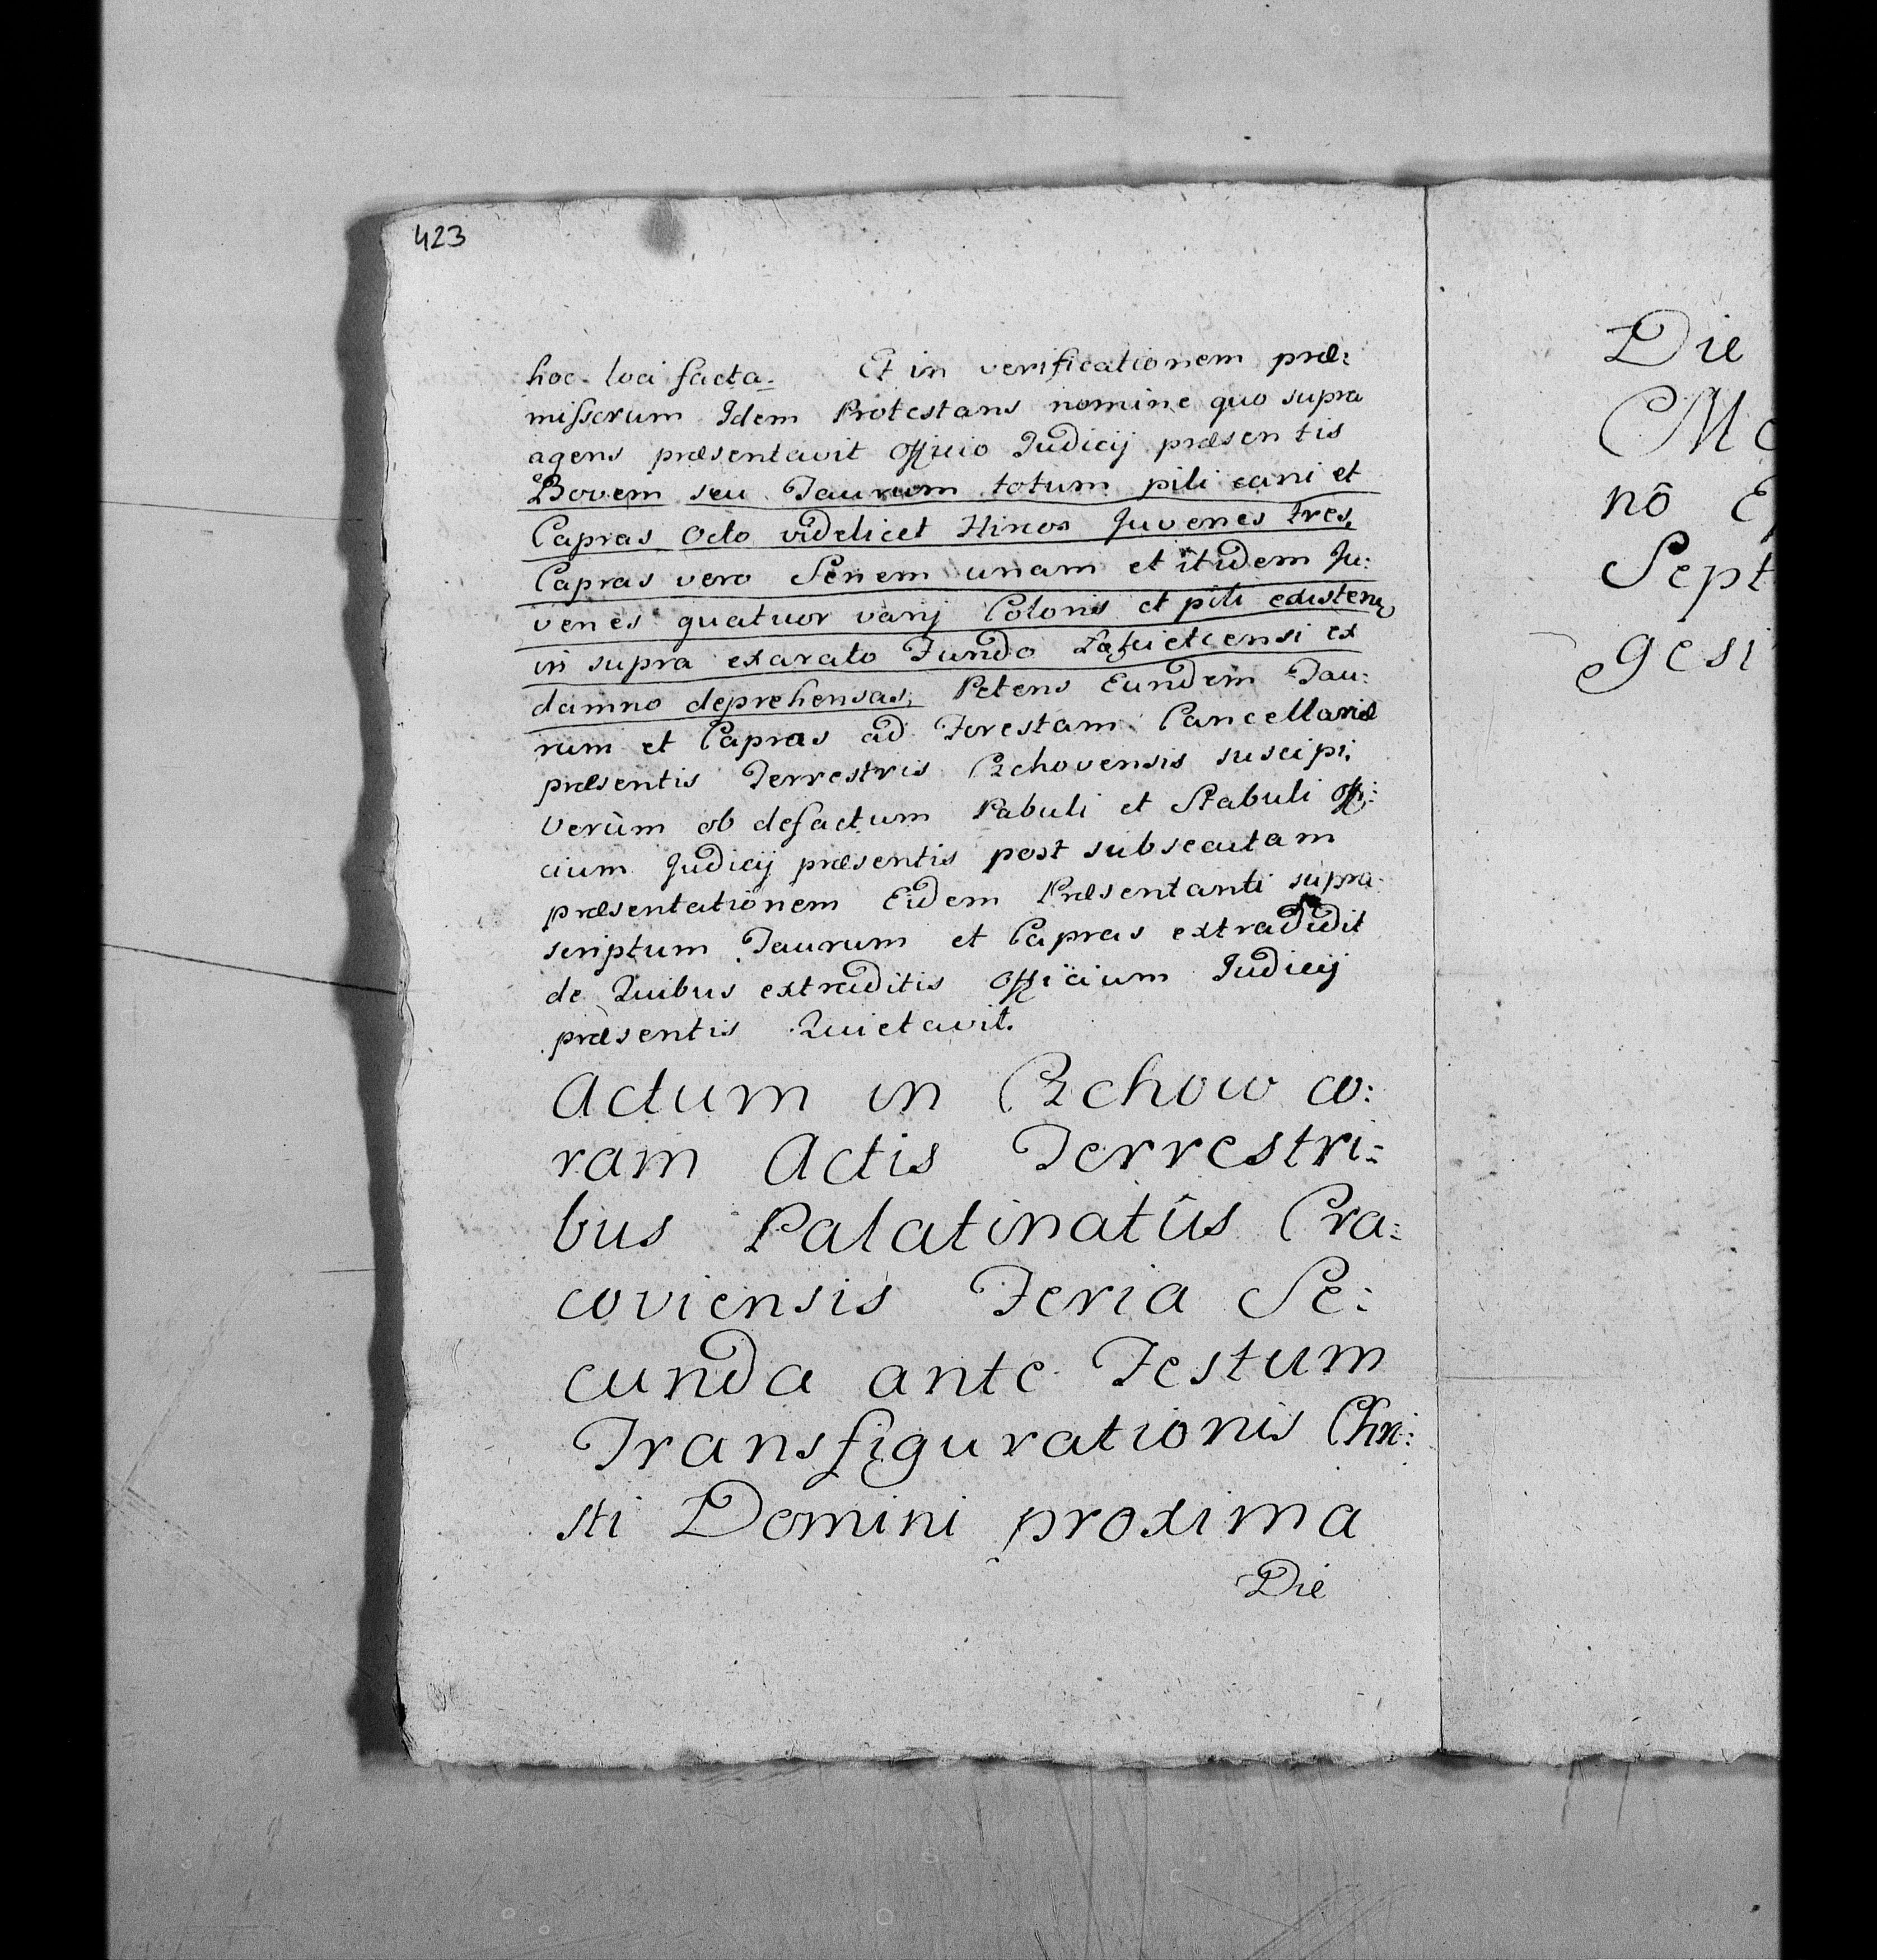 423
hoc loci facta. Et in verificationem præ:
missorum Idem Protestans nomine quo supra
agens præsentavit Officio Judicij præsentis
Bovem seu Taurum totum pili cani et
Capras Octo videlicet Hircos Juvenes tres,
Capras vero Senem unam et itidem Ju:
venes quatuor varij Coloris et pili existen
in supra exarato Fundo ex
damno deprehensas, Petens Eundem Tau:
rum et Capras ad Forestam Cancellariæ
præsentis Terrestris Czchoviensis suscipi,
Verùm ob defactum Pabuli et Stabuli Offi:
cium Judicij præsentis post subsecutam
præsentationem Eidem Præsentanti supra
scriptum Taurum et Capras extradidit
de Quibus extraditis Officium Judicij
præsentis Quietavit.
Actum in Czchow co:
ram Actis Terrestri:
bus Palatinatûs Cra:
coviensis Feria Se:
cunda ante Festum
Transfigurationis Chri:
sti Domini proxima
Die
Die
nô
Sept
gesi